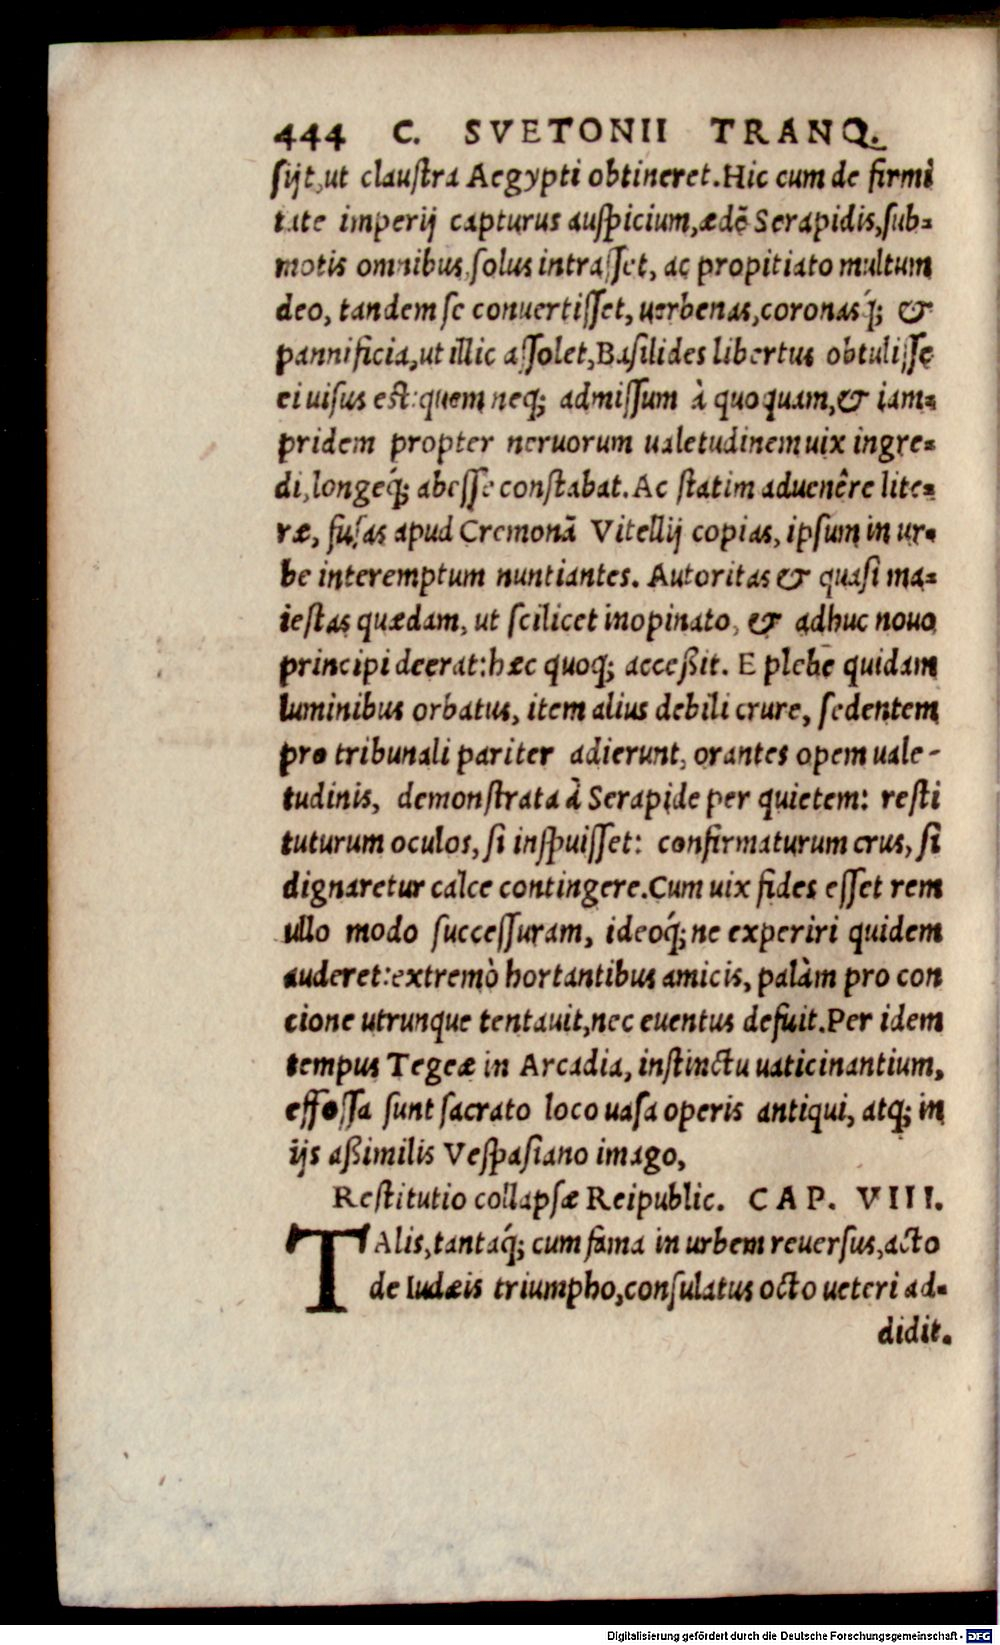 444 C. SVETONII TRANQ.
sijt,ut claustra Aegypti obtineret.Hic cum de firmi
tate imperij capturus auspicium,ædẽ Serapidis,sub-
motis omnibus,solus intrasset, ac propitiato multum
deo, tandem se conuertisset, uerbenas,coronasq́; &
pannificia,ut illic assolet,Basilides libertus obtulisse
ei uisus est:quem neq; admissum à quoquam,& iam-
pridem propter neruorum ualetudinem uix ingre-
di,longeq́; abesse constabat.Ac statim aduenêre lite-
ræ, fusas apud Cremonã Vitellij copias, ipsum in ur-
be interemptum nuntiantes. Autoritas & quasi ma-
iestas quædam, ut scilicet inopinato, & adhuc nouo
principi deerat:hæc quoq; acceßit. E plebe quidam
luminibus orbatus, item alius debili crure, sedentem
pro tribunali pariter adierunt, orantes opem uale-
tudinis, demonstrata à Serapide per quietem: resti
tuturum oculos, si inspuisset: confirmaturum crus, si
dignaretur calce contingere.Cum uix fides esset rem
ullo modo successuram, ideoq́;ne experiri quidem
auderet:extremò hortantibus amicis, palàm pro con
cione utrunque tentauit,nec euentus defuit.Per idem
tempus Tegeæ in Arcadia, instinctu uaticinantium,
effossa sunt sacrato loco uasa operis antiqui, atq; in
ijs aßimilis Vespasiano imago,
Restitutio collapsæ Reipublic. CAP. VIII.
TAlis,tantaq́; cum fama in urbem reuersus,acto
de Iudæis triumpho,consulatus octo ueteri ad-
didit.
Digitalisierung gefördert durch die Deutsche Forschungsgemeinschaft - DFG